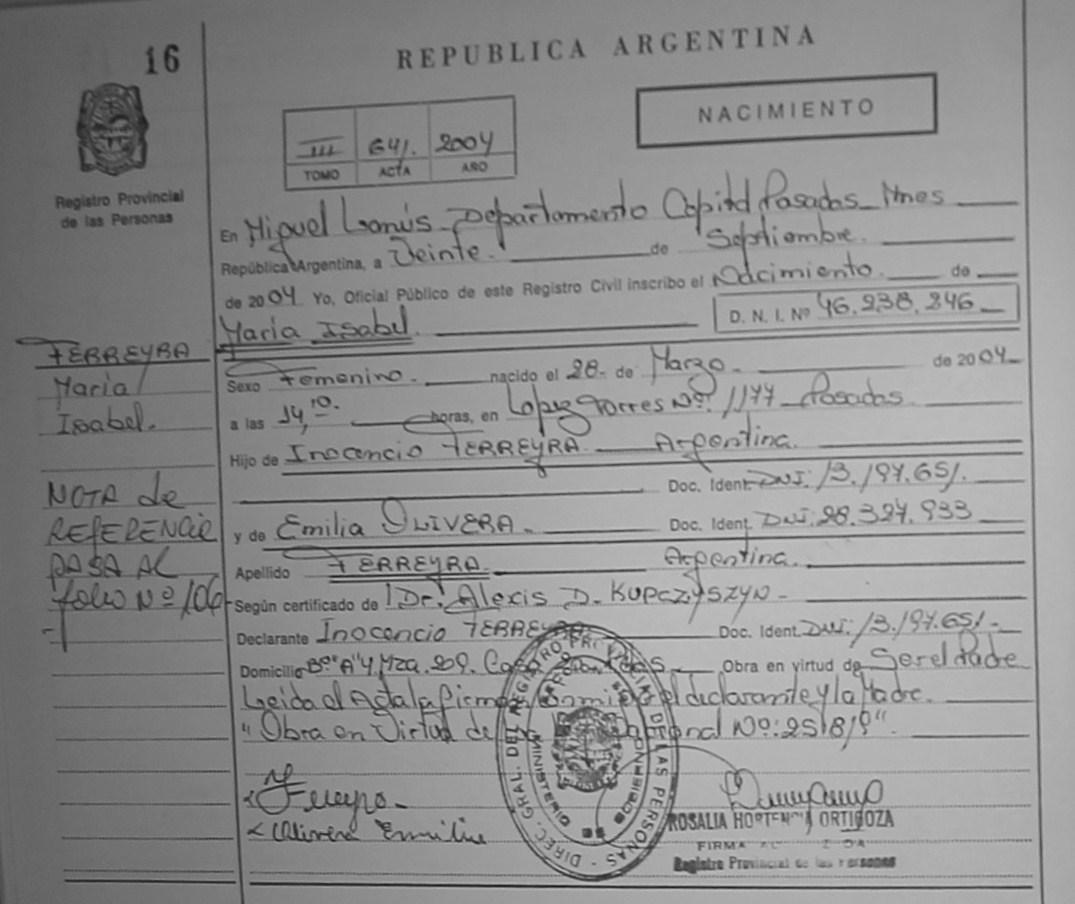 16
REPUBLICA ARGENTINA
NACIMIENTO
III 641. 2004
TOMO ACTA AÑO
Registro Provincial
de las Personas
En Miguel Lanús - Departamento Capital Posadas - Mnes
República Argentina, a Veinte. de Septiembre.
de 2004 Yo, Oficial Público de este Registro Civil inscribo el Nacimiento. de
María Isabel. D. N. I. Nº 46.238.246
FERREYRA
María
Isabel.
Sexo Femenino. nacido el 28. de Marzo. de 2004
a las 14,10. horas, en Lopez Torres Nº: 1177 - Posadas
Hijo de Inocencio FERREYRA. Argentina.
Doc. Ident. DNI: 13.197.651.
NOTA de
REFERENCIA
PASA AL
folio Nº 106
y de Emilia OLIVERA. Doc. Ident. DNI: 28.327.933
Apellido FERREYRA. Argentina.
Según certificado de Dr. Alexis D. KUPCZYSZYN -
Declarante Inocencio FERREYRA Doc. Ident. DNI: 13.197.651 -
Domicilio Bº "A" 4 Mza. 209. Casa Obra en virtud de Ser el Padre
Leida el Acta la firman conmigo el declarante y la Madre.
"Obra en Virtud de Nº: 2518/9"
Ferreyra
Olivera Emilia
DIREC. GRAL. DEL REGISTRO PROVINCIAL DE LAS PERSONAS
MINISTERIO DE GOBIERNO
ROSALIA HORTENCIA ORTIGOZA
FIRMA
Registro Provincial de las Personas